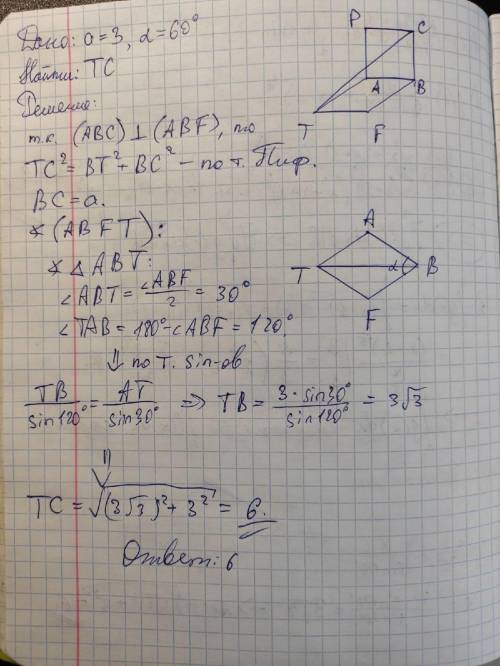 Дано: a = 3, α = 60°
Найти: TC
Решение:
т.к. (ABC) ⊥ (ABF), то
TC² = BT² + BC² - по т. Пиф.
BC = a.
∢ (ABFT):
∢ Δ ABT:
∠ABT = ∠ABF/2 = 30°
∠TAB = 180° - ∠ABF = 120°
⇓ по т. sin-ов
TB/sin120° = AT/sin30° ⇒ TB = 3·sin30°/sin120° = 3√3
⇓
TC = √((3√3)² + 3²) = 6.
Ответ: 6
P C
A B
T F
A
T α B
F